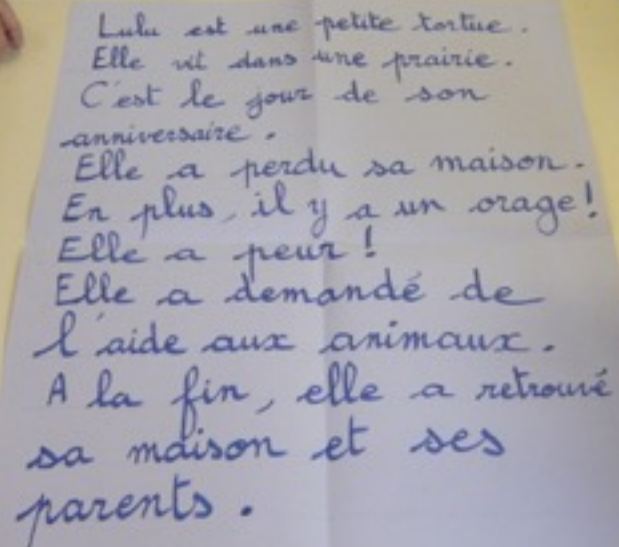 Lulu est une petite tortue.
Elle vit dans une prairie.
C'est le jour de son
anniversaire.
Elle a perdu sa maison.
En plus, il y a un orage!
Elle a peur!
Elle a demandé de
l'aide aux animaux.
A la fin, elle a retrouvé
sa maison et ses
parents.